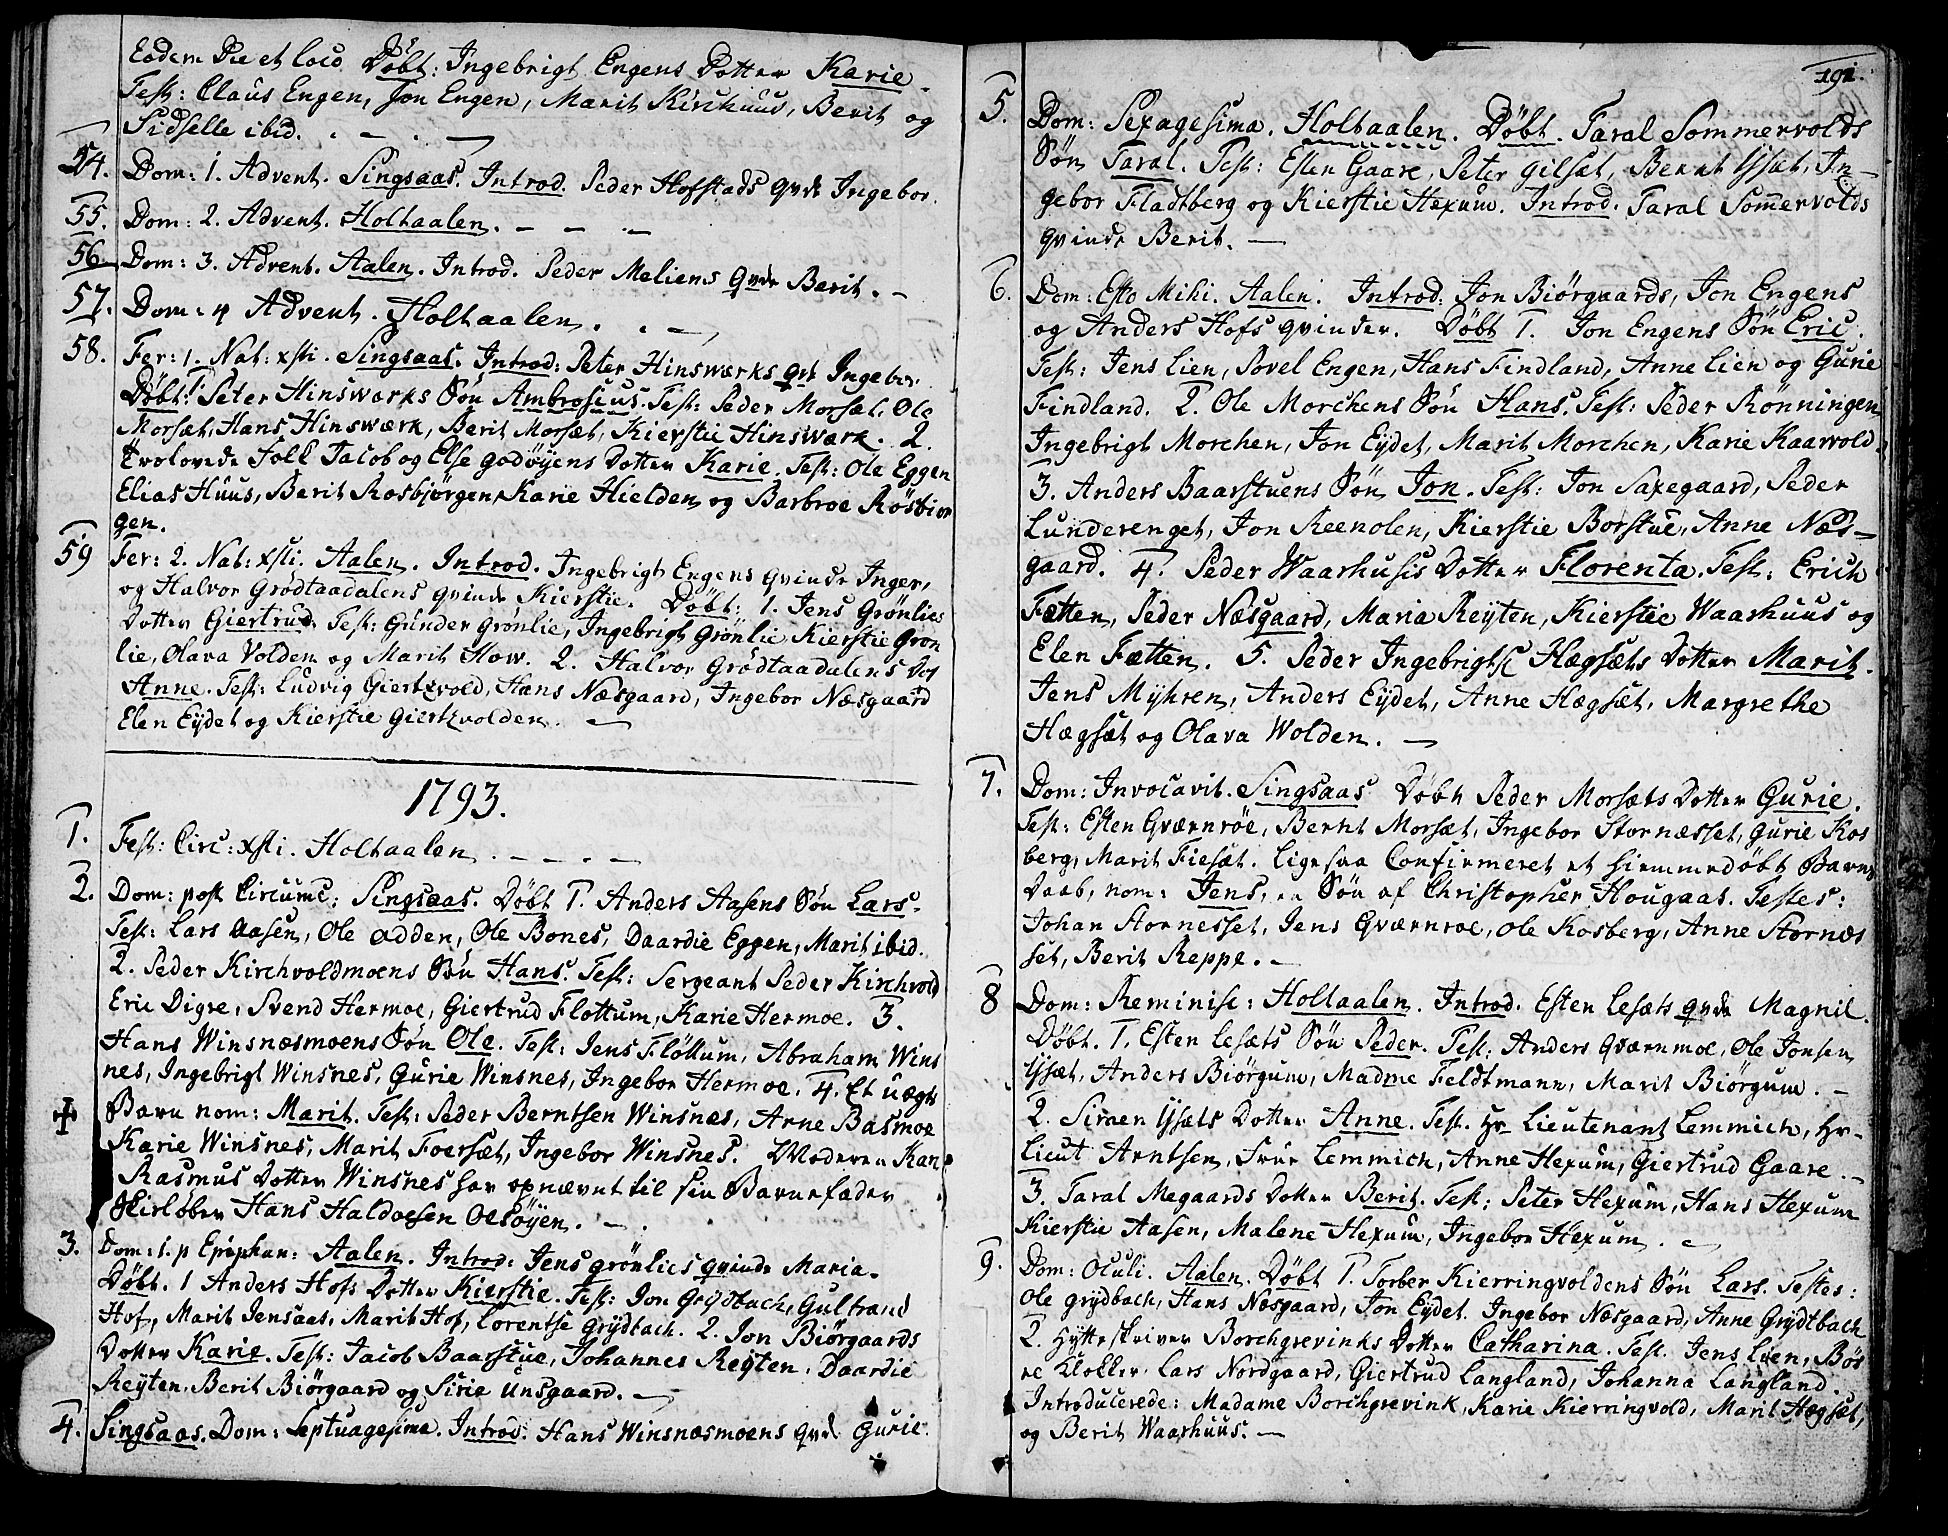 Eodem Die et loco Döbt: Ingebrigt Engens Dotter Karie.
Test: Claus Engen, Jon Engen, Marit Kirchuus, Berit og
Sidselle ibid.
54. Dom: 1. Advent. Singsaas. Introd. Peder Hofstads qvde Ingebor.
55. Dom: 2. Advent. Holtaalen.
56. Dom: 3. Advent. Aalen. Introd. Peder Meliens qvde Berit.
57. Dom: 4 Advent. Holtaalen.
58. Fer: 1. Nat: xsti. Singsaas. Introd: Peter Hinswærks qv Ingebor.
Döbt: Peter Hinsværks Sön Ambrosius. Test: Peder Morsæt, Ole
Morsæt, Hans Hinswærk, Berit Morsæt, Kierstie Hinswærk. 2.
Trolovede Folk Jacob og Else Godöyens Dotter Karie. Test: Ole Eggen
Elias Huus, Berit Rosbjörgen, Karie Hielden og Barbroe Rösbiör
gen.
59 Fer: 2. Nat: xsti. Aalen. Introd. Ingebrigt Engens qvinde Inger,
og Halvor Grödtaadalens qvinde Kierstie. Döbt: 1. Jens Grönlies
Dotter Giertrud. Test: Gunder Grönlie, Ingebrigt Grönlie Kierstie Grön
lie, Olava Volden og Marit How. 2. Halvor Grödtaadalens Dot
Anne. Test: Ludvig Giertzvold, Hans Næsgaard, Ingebor Næsgaard
Elen Eydet og Kierstie Giertzvolden.
1793.
1. Fest: Circ: xsti. Holtaalen.
2. Dom: post Circumc: Singsaas. Döbt 1. Anders Aasens Sön Lars.
Test: Lars Aasen, Ole Odden, Ole Bones, Daardie Eggen, Marit ibid.
2. Peder Kirchvoldmoens Sön Hans. Test: Sergeant Peder Kirchvold
Eric Digre, Svend Hermoe, Giertrud Flottum, Karie Hermoe. 3.
Hans Winsnæsmoens Sön Ole. Test: Jens Flöttum, Abraham Wins
nes, Ingebrigt Winsnes, Gurie Winsnes, Ingebor Hermoe. 4. Et uægte
Barn nom: Marit. Test: Peder Berntsen Winsnæs, Arne Basmoe
Karie Winsnes, Marit Foersæt, Ingebor Winsnes. Moderen Karn
Rasmus Dotter Winsnes har opnævnt til sin Barnefader
Skirløber Hans Haldoesen Oesöyen.
3. Dom: 1. p Epiphan: Aalen. Introd: Jens Grönlies qvinde Maria.
Döbt. 1 Anders Hofs Dotter Kierstie. Test: Jon Grydbach, Gultrand
Hof, Marit Jensaas, Marit Hof, Lorentse Grydbach. 2. Jon Biörgaards
Dotter Karie. Test: Jacob Baarstue, Johannes Reyten, Daardie
Reyten, Berit Biörgaard og Sirie Unsgaard.
4. Singsaas. Dom: Septuagesima. Introd: Hans Winsnæsmoens qvde Gurie.
191.
5. Dom: Sexagesima. Holtaalen. Döbt. Taral Sommervolds
Sön Taral. Test: Esten Gaare, Peter Gilset, Bernt Ysset, In-
gebor Fladtberg og Kierstie Hexum. Introd. Taral Somervolds
qvinde Berit.
6. Dom: Esto Mihi. Aalen. Introd: Jon Biörgaards, Jon Engens
og Anders Hofs qvinder. Döbt 1. Jon Engens Sön Eric.
Test: Jens Lien, Povel Engen, Hans Findland, Anne Lien og Gurie
Findland. 2. Ole Morchens Sön Hans. Test: Peder Rönningen
Ingebrigt Morchen, Jon Eydet, Marit Morchen, Karie Kaarvold.
3. Anders Baarstuens Sön Jon. Test: Jon Saxegaard, Peder
Lunderenget, Jon Reenolen, Kierstie Borstue, Anne Næs-
gaard. 4. Peder Waarhusis Dotter Florenta. Test: Erich
Fætten, Peder Næsgaard, Maria Reyten, Kierstie Waarhuus og
Elen Fætten. 5. Peder Ingebrigts Hægsæts Dotter Marit.
Jens Myhren, Anders Eydet, Anne Hægsæt, Margrethe
Hægsæt og Olava Wolden.
7. Dom: Invocavit. Singsaas Döbt Peder Morsæts Dotter Gurie.
Test: Esten Qværnröe, Bernt Morsæt, Ingebor Stornæsset, Gurie Kos
berg, Marit Fiesæt. Ligesaa Confirmeret et hiemmedöbt Barns
Daab, nom: Jens, en Sön af Christopher Hougaas. Testes:
Johan Stornesset, Jens Qværnroe, Ole Kosberg, Anne Stornæs
set, Berit Reppe.
8 Dom: Reminisc: Holtaalen. Introd. Esten Lesæts qvde Magnil.
Döbt. 1. Esten Lesæts Sön Peder. Test: Anders Qværnmoe, Ole Jonsen
Ysset, Anders Biörgum, Madme Feldtmann, Marit Biörgum.
2. Simen Ysæts Dotter Anne. Test. Hr Lieutenant Lemmich, Hr-
Lieut Arntsen, Frue Lemmich, Anne Hexum, Giertrud Gaare.
3. Taral Megaards Dotter Berit. Test: Peter Hexum, Hans Hexum
Kierstie Aasen, Malene Hexum, Ingebor Hexum.
9. Dom: Oculi. Aalen. Döbt 1. Torber Kierringvoldens Sön Lars. Testes:
Ole Grydbach, Hans Næsgaard, Jon Eydet. Ingebor Næsgaard, Anne Grydtbach
2. Hytteskriver Borchgrevinks Dotter Catharina. Test. Jens Lien, Bös
re Klokker. Lars Nordgaard, Giertrud Langland, Johanna Langland.
Introducerede: Madame Borchgrevink, Karie Kierringvold, Marit Hægsæt,
og Berit Waarhuus.